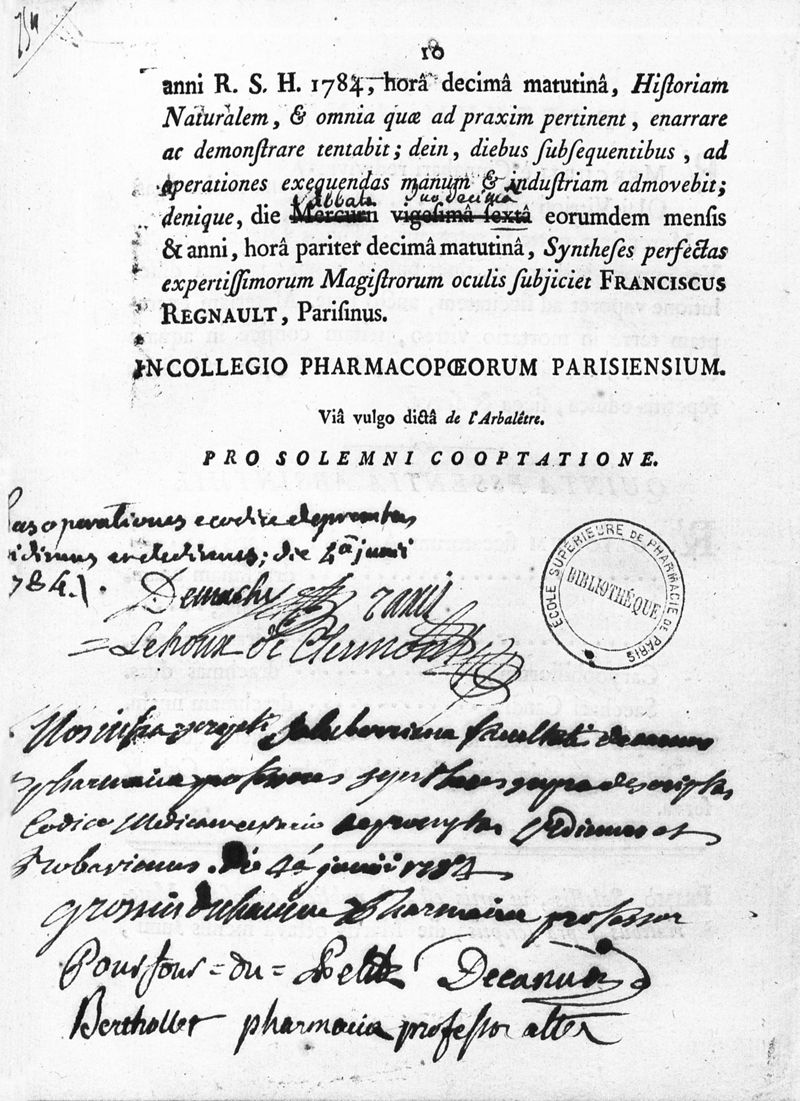 754
10
anni R. S. H. 1784, horâ decimâ matutinâ, Hiſtoriam
Naturalem, & omnia quæ ad praxim pertinent, enarrare
ac demonſtrare tentabit; dein, diebus ſubſequentibus, ad
operationes exequendas manum & induſtriam admovebit;
Sabbata decimâ
denique, die Mercurii vigeſimâ ſextâ eorumdem menſis
& anni, horâ pariter decimâ matutinâ, Syntheſes perfectas
expertiſſimorum Magiſtrorum oculis ſubjiciet FRANCISCUS
REGNAULT, Pariſinus.
IN COLLEGIO PHARMACOPŒORUM PARISIENSIUM.
Viâ vulgo dictâ de l'Arbalêtre.
PRO SOLEMNI COOPTATIONE.
has operationes e codice depromtas
vidimus et edidimus; die 4â junii
1784.
Demachy
= Lehoux de Clermont
ECOLE SUPÉRIEURE DE PHARMACIE DE PARIS
BIBLIOTHÉQUE
Nos infra scripti saluberrimæ facultatis decanus
pharmaciæ professores syntheses supra descriptas
Codice Medicamentario depromptas Vidimus et
probavimus. die 4â junii 1784
pharmaciæ professor
Pourfour = du = Petit Decanus
Berthollet pharmaciæ professor alter